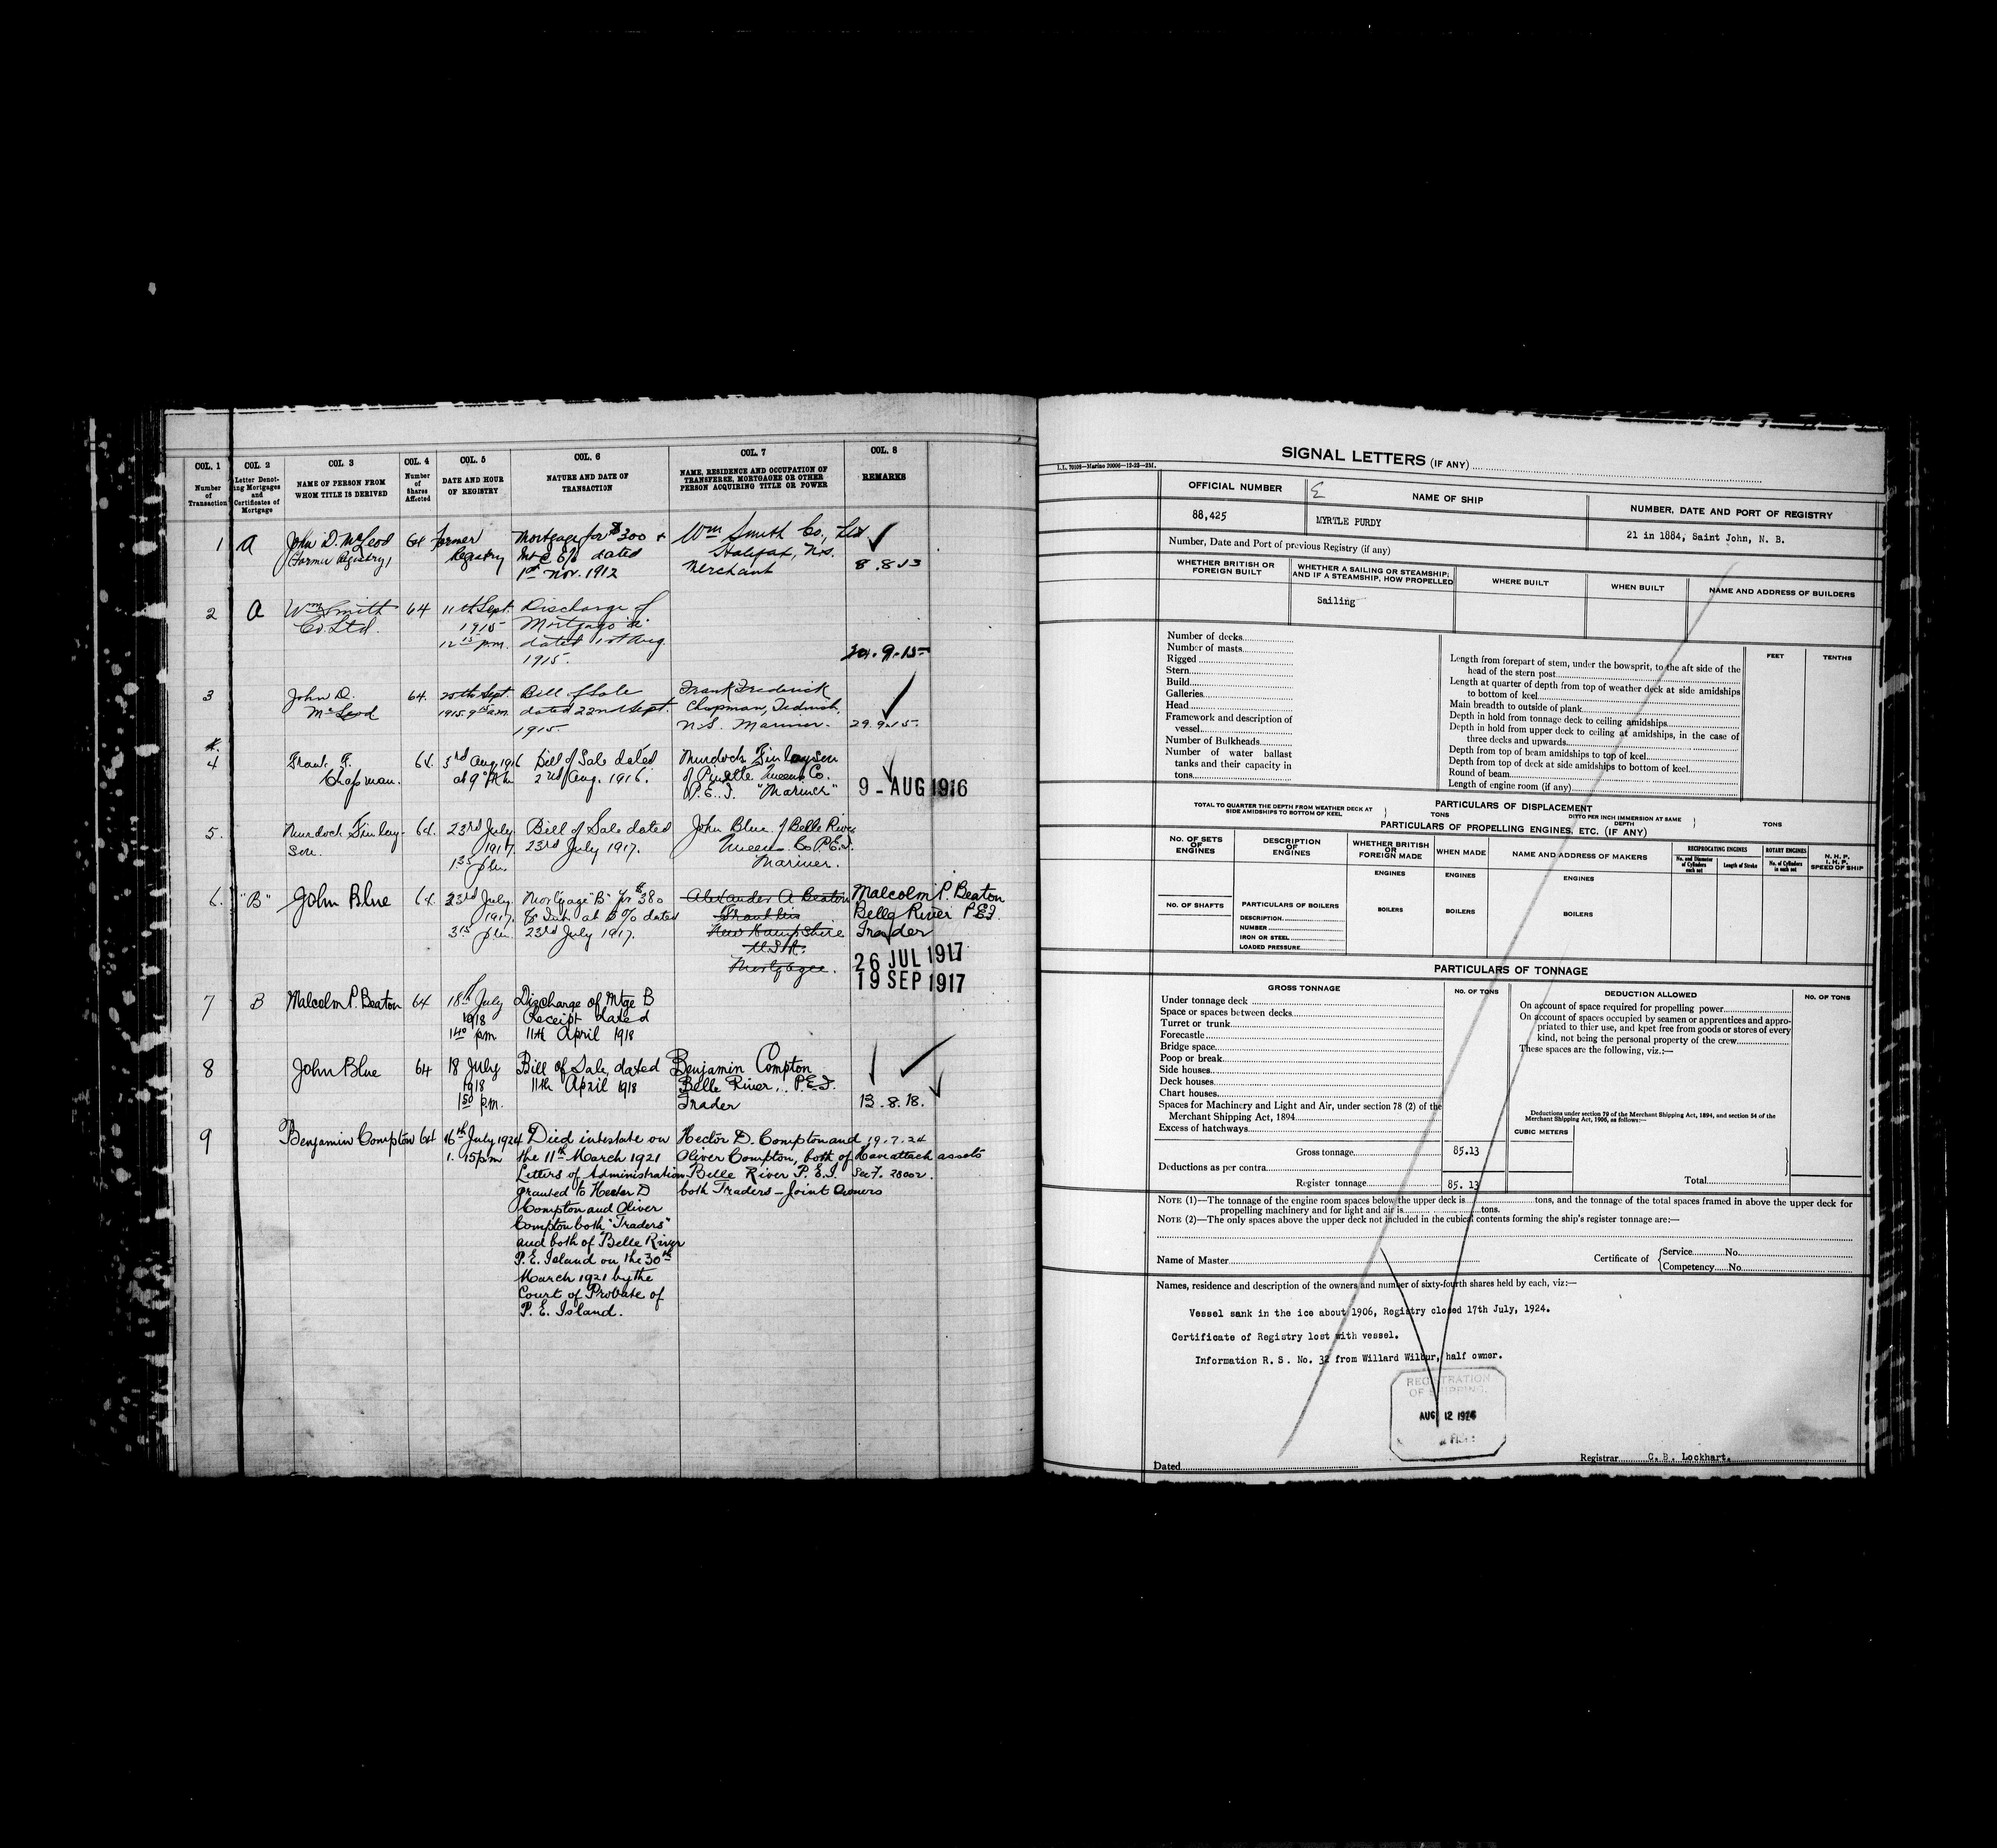 COL. 1
Number
of
Transaction
COL. 2
Letter Denot-
ing Mortgages
and
Certificates of
Mortgage
COL. 3
NAME OF PERSON FROM
WHOM TITLE IS DERIVED
COL. 4
Number
of
Shares
Affected
COL. 5
DATE AND HOUR
OF REGISTRY
COL. 6
NATURE AND DATE OF
TRANSACTION
COL. 7
NAME, RESIDENCE AND OCCUPATION OF
TRANSFEREE, MORTGAGEE OR OTHER
PERSON ACQUIRING TITLE OR POWER
COL. 8
REMARKS
1
a
John D. McLeod
(Former Registry)
64
Former
Registry
Mortgage for $300 &
Int @ 8% dated
1st Nov. 1912
Wm Smith Co., Ltd
Halifax, N.S.
Merchant
8.8.13
2
a
Wm Smith
Co. Ltd.
64
11th Sept.
1915
12 15 p.m.
Discharge of
Mortgage "a"
dated 1st Aug.
1915.
20.9.15
3
John D.
McLeod
64
25th Sept.
1915. 9 15 a.m.
Bill of Sale
dated 22nd Sept.
1915.
Frank Frederick
Chapman, Tidnish,
N.S. Mariner.
29.9.15
4
Frank F.
Chapman.
64.
3rd Aug. 1916
at 9 A.M.
Bill of Sale dated
2nd Aug. 1916.
Murdock Finlayson
of Pinette Queens Co.
P.E.I. "Mariner"
9 - AUG 1916
5.
Murdock Finlay-
son.
64.
23rd July
1917.
1 35 p.m.
Bill of Sale dated
23rd July 1917.
John Blue of Belle River
Queens Co P.E.I.
Mariner.
6.
"B"
John Blue
64.
23rd July
1917.
3 15 p.m.
Mortgage "B" for $380
& Int. at 8% dated
23rd July 1917.
Alexander A Beaton
Franklin
New Hampshire
U.S.A.
Mortgagee.
Malcolm P. Beaton
Belle River P.E.I
Trader
26 JUL 1917
19 SEP 1917
7
B
Malcolm P. Beaton
64
18th July
1918
1 40 pm
Discharge of Mtge B
Receipt dated
11th April 1918
8
John Blue
64
18 July
1918
1 50 p.m.
Bill of Sale, dated
11th April 1918
Benjamin Compton
Belle River, P.E.I.
Trader
13.8.18.
9
Benjamin Compton
64
16th July 1924
1. 15pm
Died intestate on
the 11th March 1921
Letters of Administration
granted to Hector D
Compton and Oliver
Compton both "Traders"
and both of Belle River
P. E. Island on the 30th
March 1921 by the
Court of Probate of
P. E. Island.
Hector D. Compton and
Oliver Compton, both of
Belle River P. E. I.
both Traders - Joint Owners
19.7.24
attach assets
28002.
SIGNAL LETTERS (IF ANY)
L.L. 70108—Marine 20006—12-23—2M.
OFFICIAL NUMBER
88,425
NAME OF SHIP
MYRTLE PURDY
NUMBER, DATE AND PORT OF REGISTRY
21 in 1884, Saint John, N. B.
Number, Date and Port of previous Registry (if any)
WHETHER BRITISH OR
FOREIGN BUILT
WHETHER A SAILING OR STEAMSHIP;
AND IF A STEAMSHIP, HOW PROPELLED
Sailing
WHERE BUILT
WHEN BUILT
NAME AND ADDRESS OF BUILDERS
Number of decks
Number of masts
Rigged
Stern
Build
Galleries
Head
Framework and description of
vessel
Number of Bulkheads
Number of water ballast
tanks and their capacity in
tons
FEET
TENTHS
Length from forepart of stem, under the bowsprit, to the aft side of the
head of the stern post
Length at quarter of depth from top of weather deck at side amidships
to bottom of keel
Main breadth to outside of plank
Depth in hold from tonnage deck to ceiling amidships
Depth in hold from upper deck to ceiling at amidships, in the case of
three decks and upwards
Depth from top of beam amidships to top of keel
Depth from top of deck at side amidships to bottom of keel
Round of beam
Length of engine room (if any)
PARTICULARS OF DISPLACEMENT
TOTAL TO QUARTER THE DEPTH FROM WEATHER DECK AT
SIDE AMIDSHIPS TO BOTTOM OF KEEL
TONS
DITTO PER INCH IMMERSION AT SAME
DEPTH
TONS
PARTICULARS OF PROPELLING ENGINES, ETC. (IF ANY)
NO. OF SETS
OF
ENGINES
DESCRIPTION
OF
ENGINES
WHETHER BRITISH
OR
FOREIGN MADE
WHEN MADE
NAME AND ADDRESS OF MAKERS
RECIPROCATING ENGINES
No. and Diameter
of Cylinders
each set
Length of Stroke
ROTARY ENGINES
No. of Cylinders
in each set
N. H. P.
I. H. P.
SPEED OF SHIP
ENGINES
ENGINES
ENGINES
NO. OF SHAFTS
PARTICULARS OF BOILERS
DESCRIPTION
NUMBER
IRON OR STEEL
LOADED PRESSURE
BOILERS
BOILERS
BOILERS
PARTICULARS OF TONNAGE
GROSS TONNAGE
NO. OF TONS
DEDUCTION ALLOWED
NO. OF TONS
Under tonnage deck
Space or spaces between decks
Turret or trunk
Forecastle
Bridge space
Poop or break
Side houses
Deck houses
Chart houses
Spaces for Machinery and Light and Air, under section 78 (2) of the
Merchant Shipping Act, 1894
Excess of hatchways
Gross tonnage
85.13
Deductions as per contra
Register tonnage
85. 13
On account of space required for propelling power
On account of spaces occupied by seamen or apprentices and appro-
priated to thier use, and kpet free from goods or stores of every
kind, not being the personal property of the crew
These spaces are the following, viz.:—
Deductions under section 79 of the Merchant Shipping Act, 1894, and section 54 of the
Merchant Shipping Act, 1906, as follows:—
CUBIC METERS
Total
NOTE (1)—The tonnage of the engine room spaces below the upper deck is tons, and the tonnage of the total spaces framed in above the upper deck for
propelling machinery and for light and air is tons.
NOTE (2)—The only spaces above the upper deck not included in the cubical contents forming the ship's register tonnage are:—
Name of Master
Certificate of
Service No.
Competency No.
Names, residence and description of the owners and number of sixty-fourth shares held by each, viz:—
Vessel sank in the ice about 1906, Registry closed 17th July, 1924.
Certificate of Registry lost with vessel.
Information R. S. No. 32 from Willard Wilbur, half owner.
REGISTRATION
OF SHIPPING.
AUG 12 1924
Dated
Registrar C. B. Lockhart.